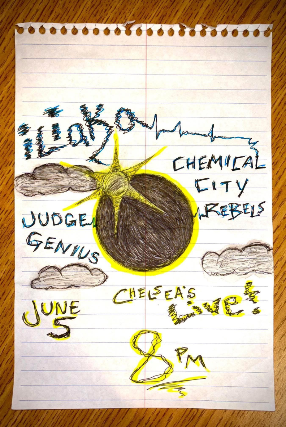 iLiaKa
CHEMICAL
CITY
REBELS
JUDGE
GENIUS
JUNE
5
CHELSEA'S
Live!
8 PM